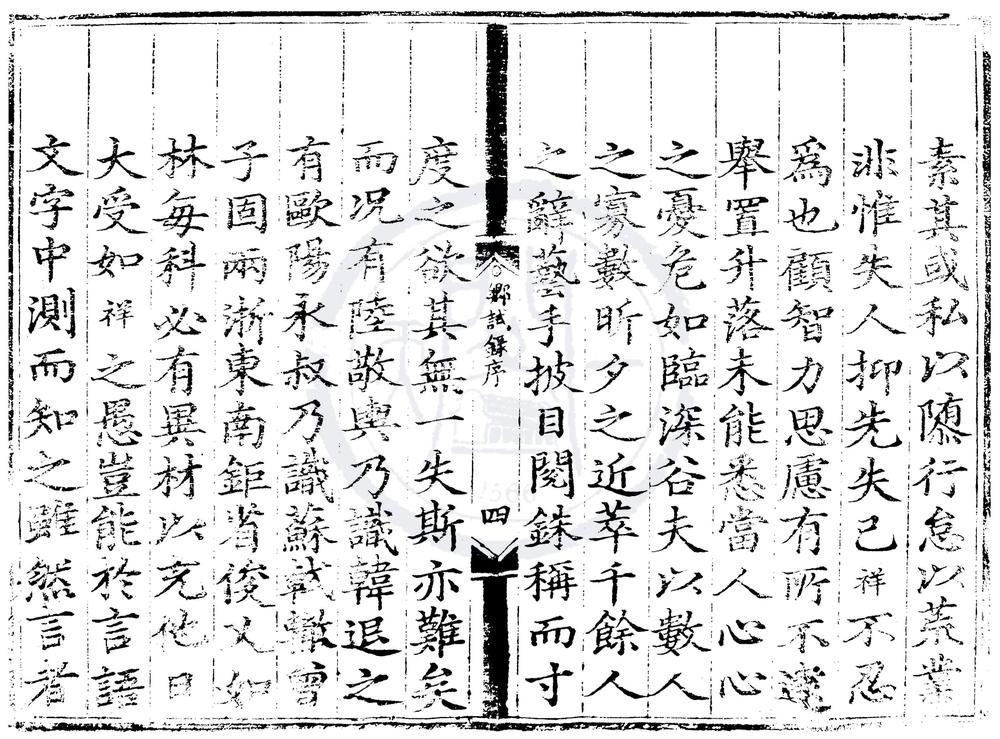 素其或私以隳行怠以荒業
非惟失人抑先失己祥不忍
爲也顧智力思慮有所不逮
舉置升落未能悉當人心心
之憂危如臨深谷夫以數人
之寡數昕夕之近萃千餘人
之辭藝手披目閱銖稱而寸
鄉試錄序
四
度之欲其無一失斯亦難矣
而况有陸敬輿乃識韓退之
有歐陽永叔乃識蘇軾轍曾
子固兩浙東南鉅省俊乂如
林每科必有異材以充他日
大受如祥之愚豈能於言語
文字中測而知之雖然言者